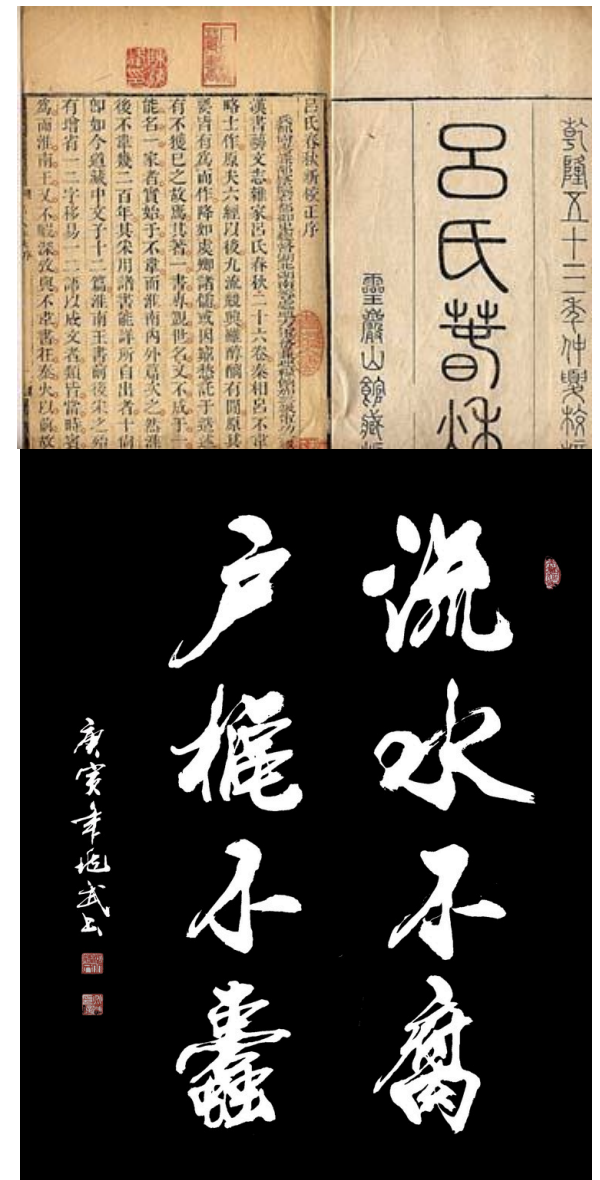 乾隆五十三年仲夏校
呂氏春秋
靈巖山館藏
呂氏春秋新校正序
漢書蓺文志雜家呂氏春秋二十六卷秦相呂不韋
略士作原夫六經以後九流競興雖醇醨有間原其
要皆有爲而作降如虞卿諸儒或因窮愁託于造述
有不獲已之故焉其著一書專覬世名文不成于一
能名一家者實始于不韋而淮南內外篇次之然淮
後不韋幾二百年其采用諸書能詳所自出者十尚
卽如今道藏中文子十二篇淮南王書前後采之殆
有增省一二字移易一二語以成文者類皆當時賓
爲而淮南王又不暇深攷與不韋書在秦火以前故
流水不腐
户樞不蠹
庚寅年武书